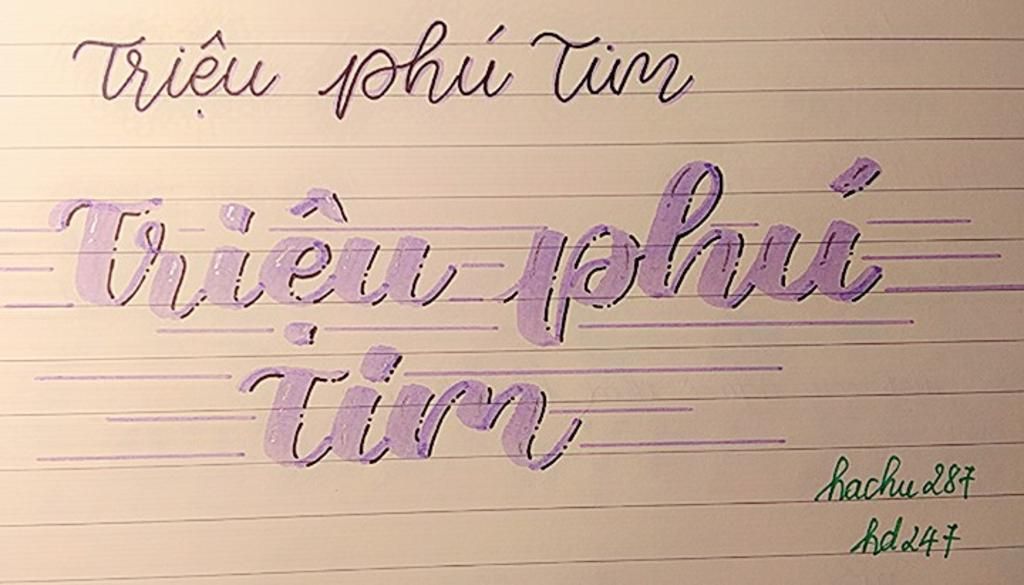 Triệu phú Tim
Triệu phú
Tim
hachu287
hd247